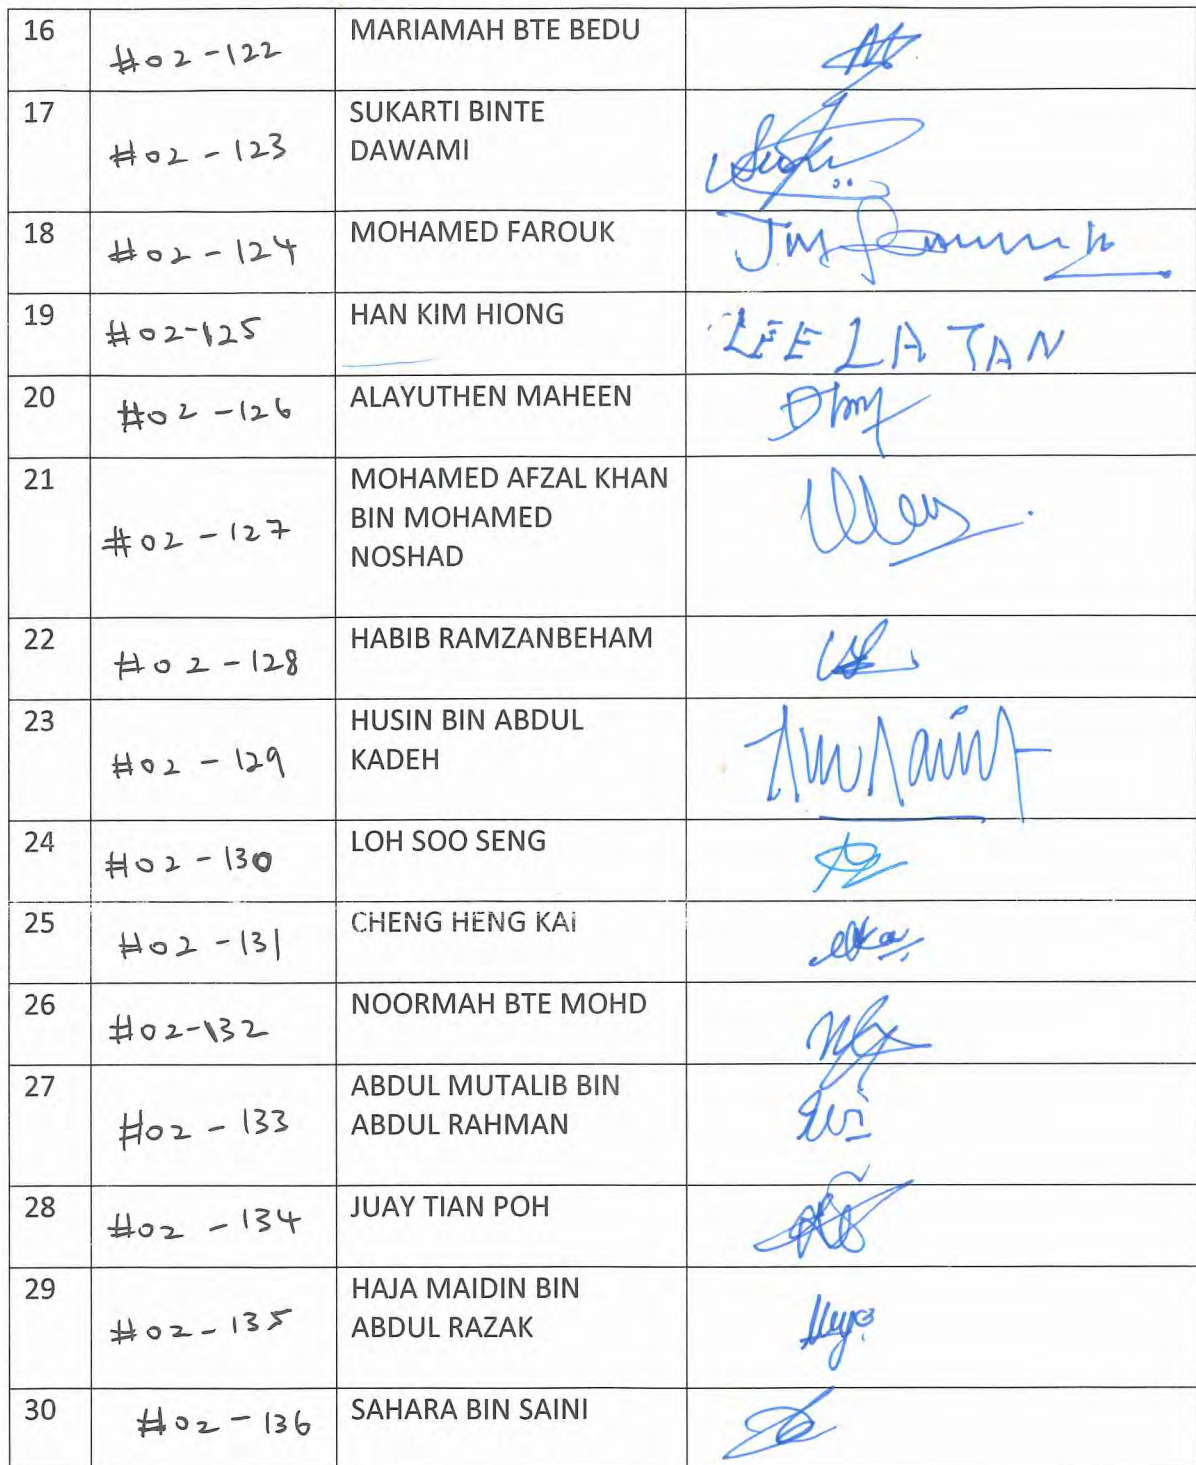 16 #02-122 MARIAMAH BTE BEDU
17 #02-123 SUKARTI BINTE
DAWAMI
18 #02-124 MOHAMED FAROUK
19 #02-125 HAN KIM HIONG LEE LA TAN
20 #02-126 ALAYUTHEN MAHEEN
21 #02-127 MOHAMED AFZAL KHAN
BIN MOHAMED
NOSHAD
22 #02-128 HABIB RAMZANBEHAM
23 #02-129 HUSIN BIN ABDUL
KADEH
24 #02-130 LOH SOO SENG
25 #02-131 CHENG HENG KAI
26 #02-132 NOORMAH BTE MOHD
27 #02-133 ABDUL MUTALIB BIN
ABDUL RAHMAN
28 #02-134 JUAY TIAN POH
29 #02-135 HAJA MAIDIN BIN
ABDUL RAZAK
30 #02-136 SAHARA BIN SAINI